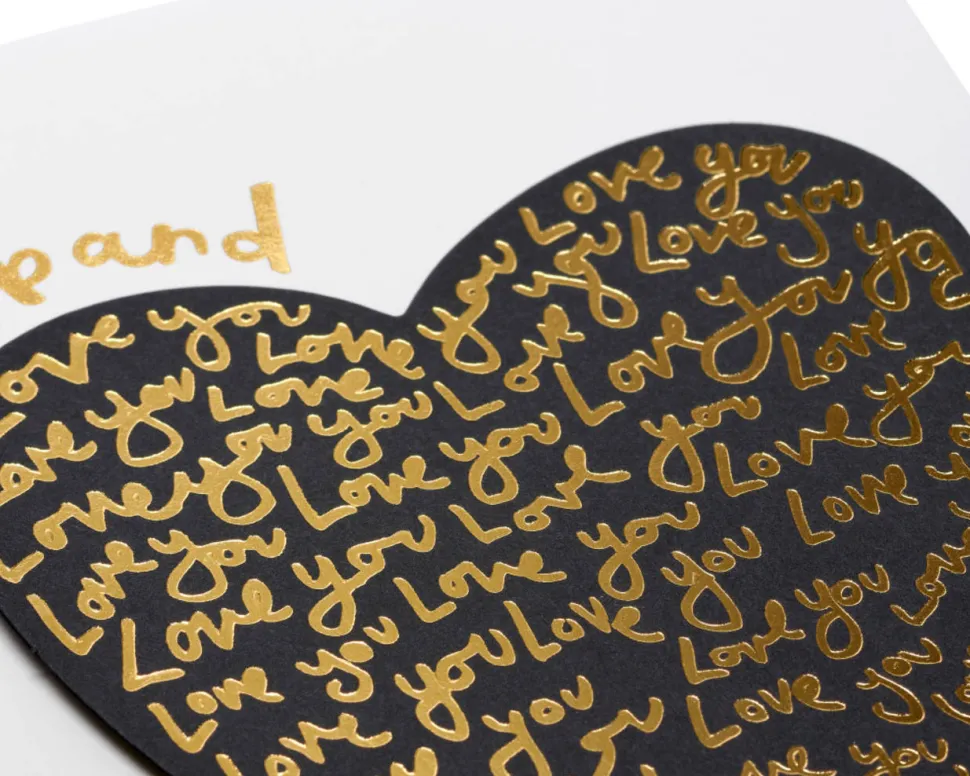 pand
Love you
Love you Love you
Love you Love you Love you yo
Love you Love you Love you Love
Love you Love you Love you Love you
Love you Love you Love you Love you Love
Love you Love you Love you Love you Love
Love you Love you Love you
Love you you Love you